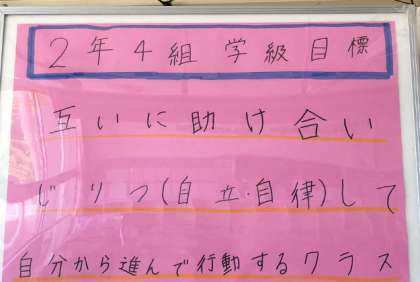 2年4組 学級目標
互いに助け合い
じりつ(自立·自律)して
自分から進んで行動するクラス